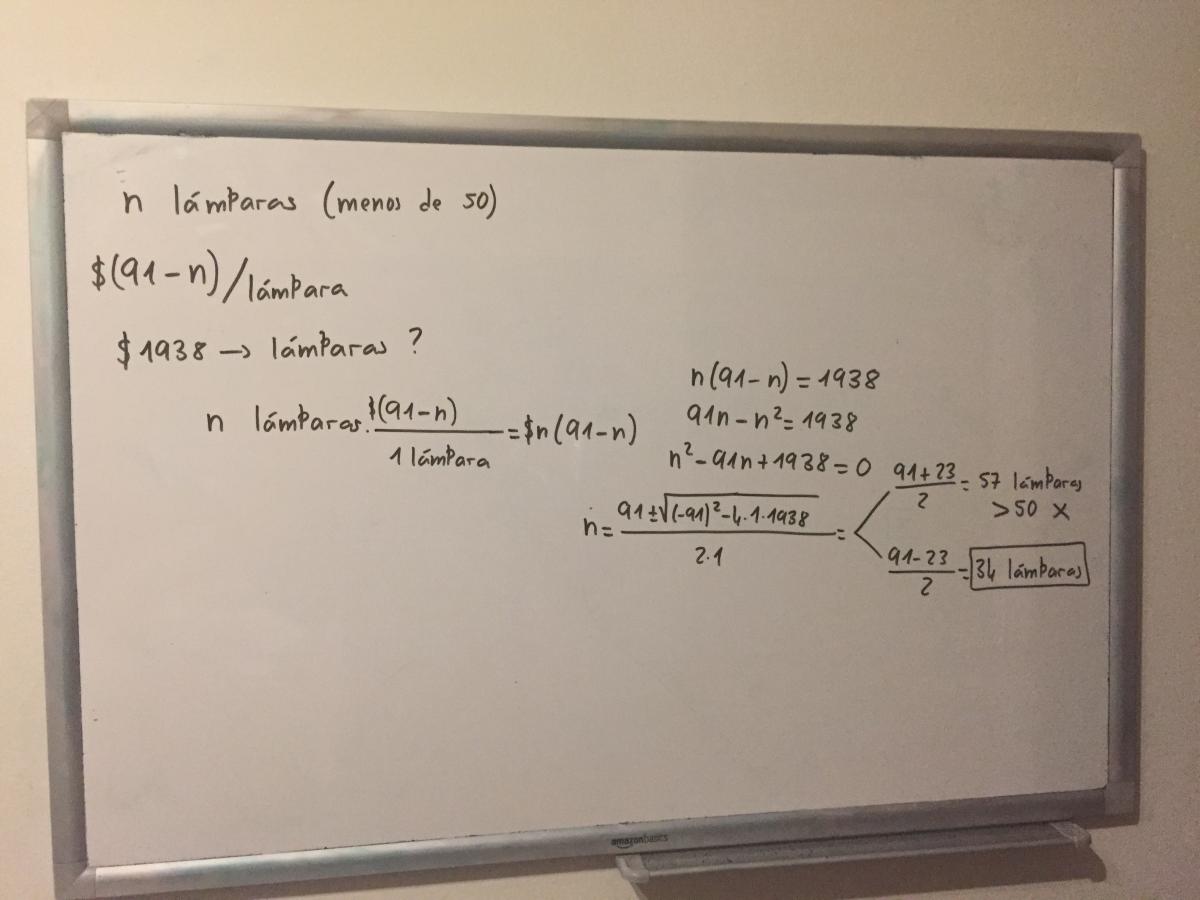 n lámparas (menos de 50)
$(91-n)/lámpara
$1938 → lámparas ?
n lámparas · $(91-n)/1 lámpara = $n(91-n)
n(91-n) = 1938
91n - n² = 1938
n² - 91n + 1938 = 0
n = (91 ± √((-91)² - 4·1·1938))/(2·1) =
(91+23)/2 = 57 lámparas
>50 X
(91-23)/2 = 34 lámparas
amazonbasics